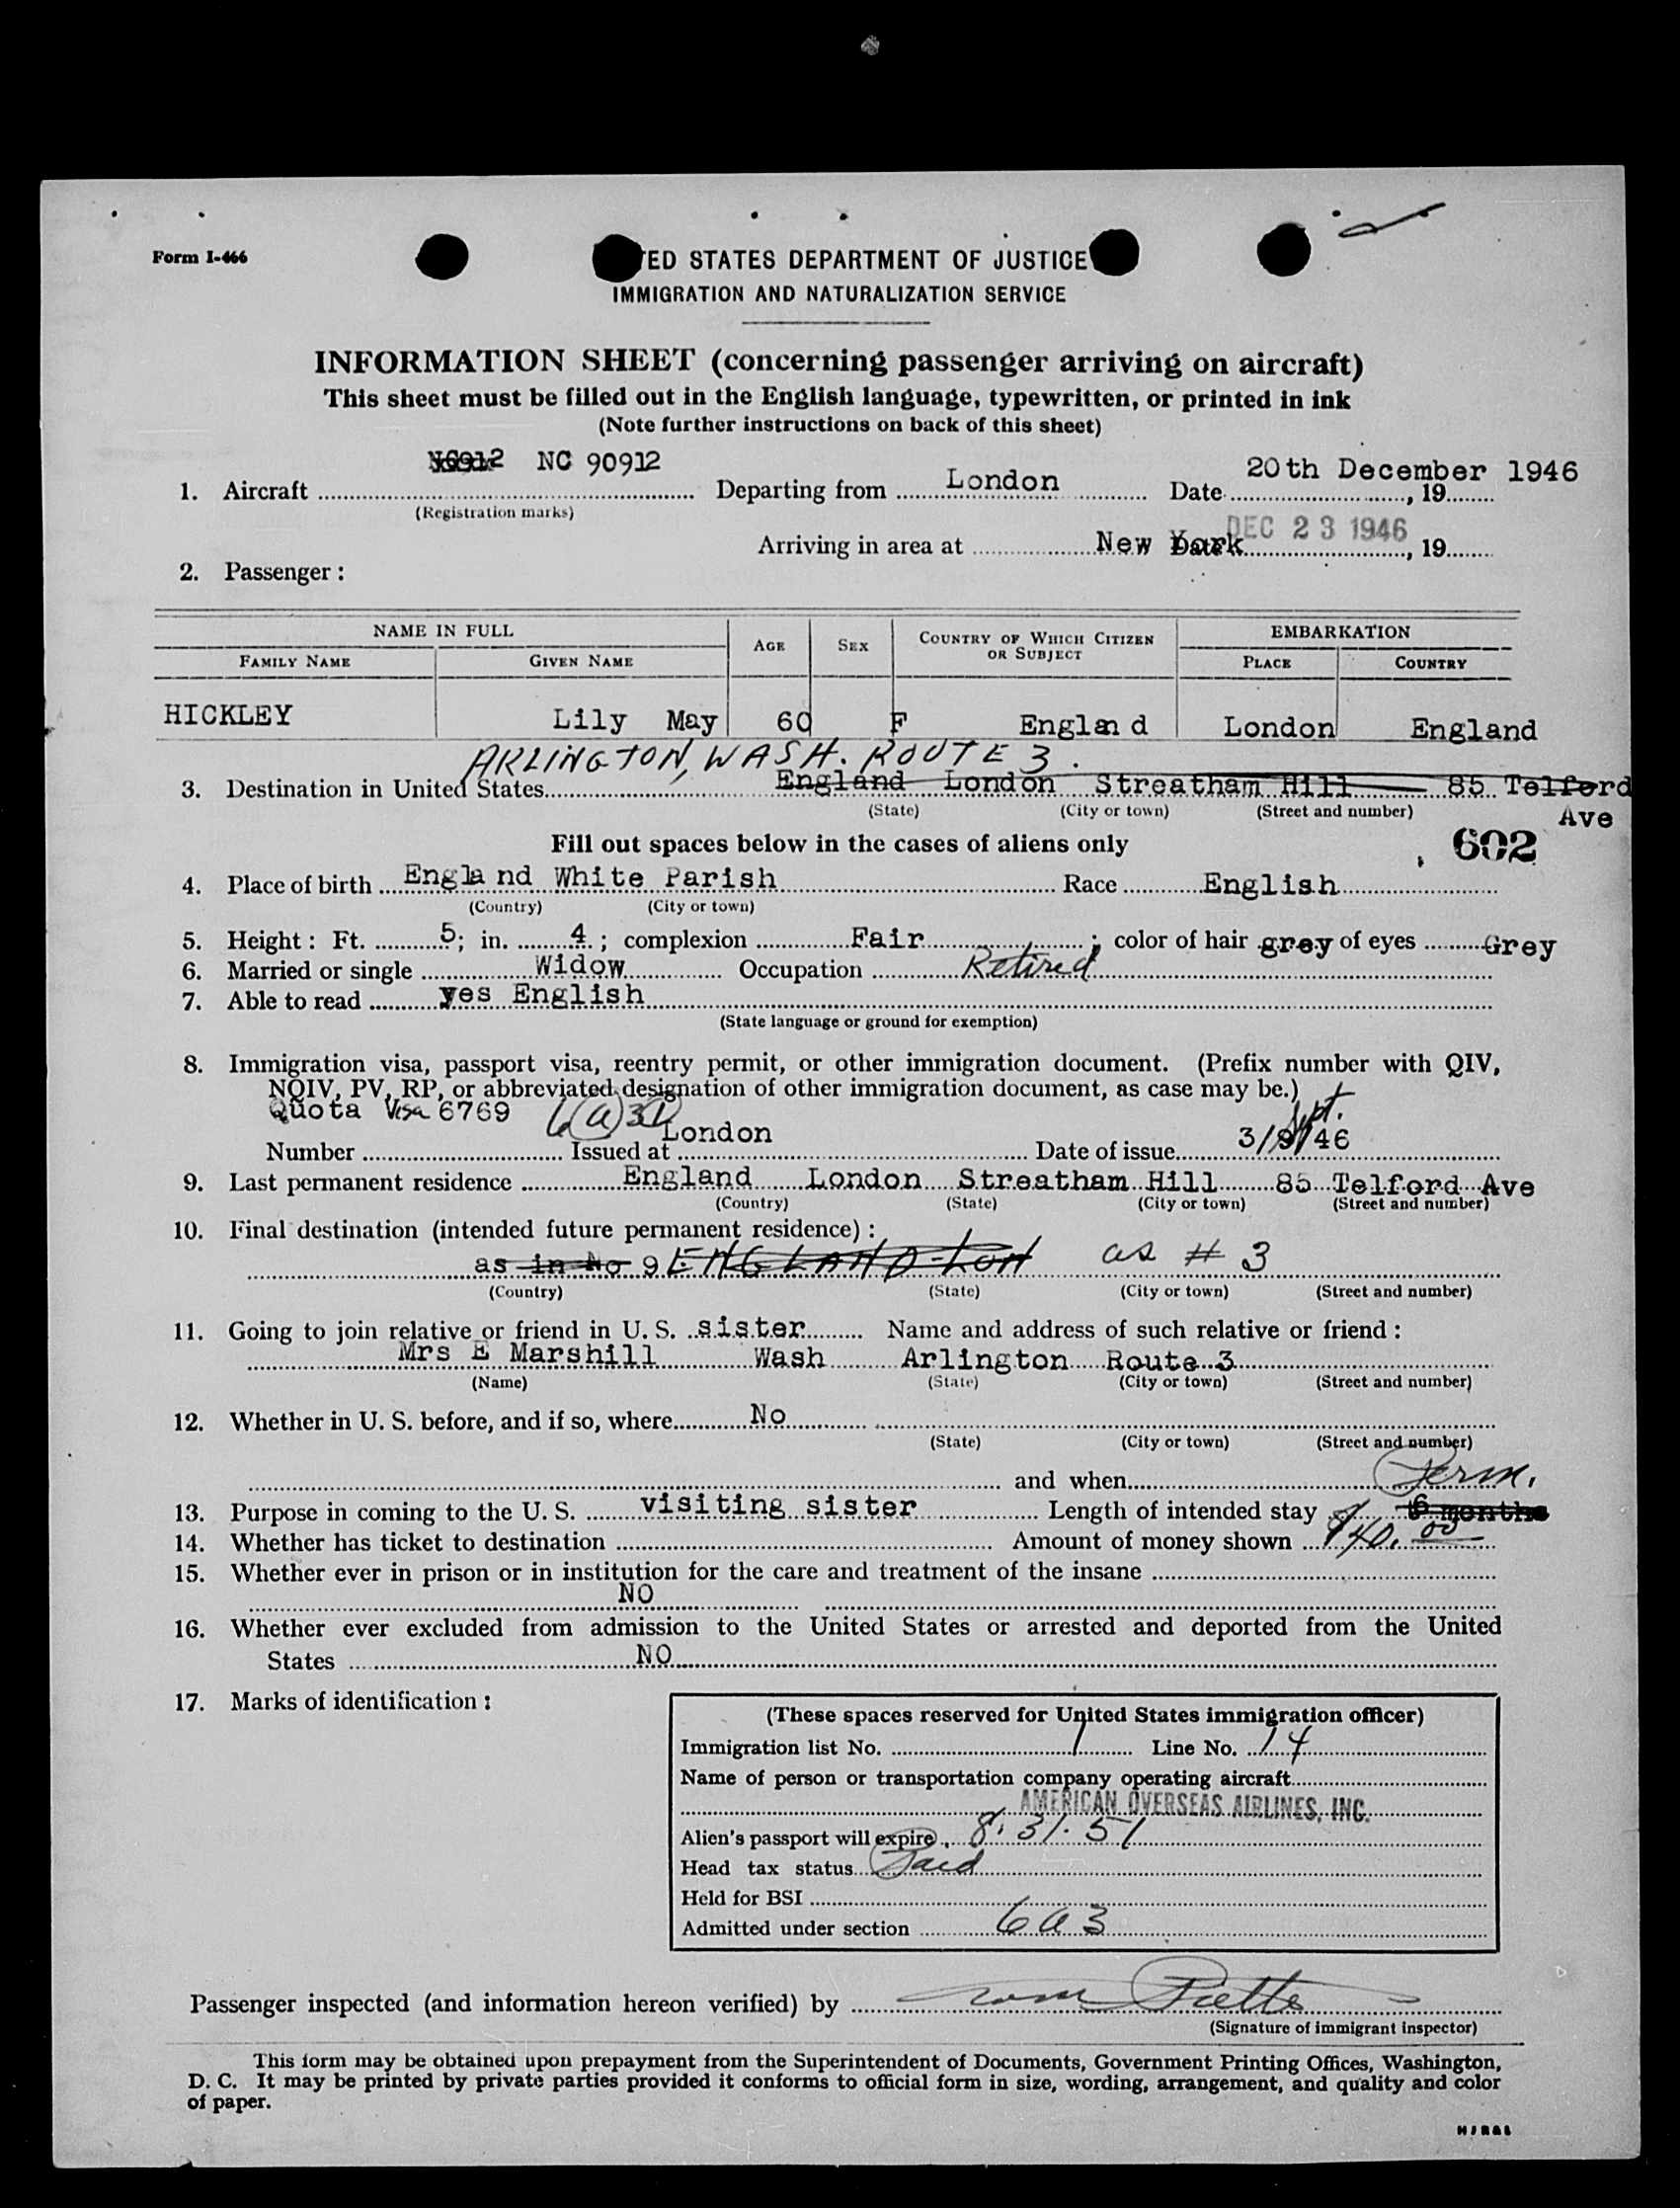 Form I-466
TED STATES DEPARTMENT OF JUSTICE
IMMIGRATION AND NATURALIZATION SERVICE
INFORMATION SHEET (concerning passenger arriving on aircraft)
This sheet must be filled out in the English language, typewritten, or printed in ink
(Note further instructions on back of this sheet)
NC 90912
1. Aircraft Departing from London Date 20th December 1946, 19
(Registration marks)
Arriving in area at New York Date DEC 23 1946, 19
2. Passenger:
NAME IN FULL AGE SEX COUNTRY OF WHICH CITIZEN OR SUBJECT EMBARKATION
FAMILY NAME GIVEN NAME PLACE COUNTRY
HICKLEY Lily May 60 F England London England
ARLINGTON, WASH. ROUTE 3.
3. Destination in United States England London Streatham Hill 85 Telford
(State) (City or town) (Street and number) Ave
Fill out spaces below in the cases of aliens only 602
4. Place of birth England White Parish Race English
(Country) (City or town)
5. Height: Ft. 5; in. 4; complexion Fair; color of hair grey of eyes Grey
6. Married or single Widow Occupation Retired
7. Able to read yes English
(State language or ground for exemption)
8. Immigration visa, passport visa, reentry permit, or other immigration document. (Prefix number with QIV,
NQIV, PV, RP, or abbreviated designation of other immigration document, as case may be.)
Quota Visa 6769 6(a)3 Sept.
Number Issued at London Date of issue 3/9/46
9. Last permanent residence England London Streatham Hill 85 Telford Ave
(Country) (State) (City or town) (Street and number)
10. Final destination (intended future permanent residence):
as in No 9 ENGLAND - LON as # 3
(Country) (State) (City or town) (Street and number)
11. Going to join relative or friend in U. S. sister Name and address of such relative or friend:
Mrs E Marshill Wash Arlington Route 3
(Name) (State) (City or town) (Street and number)
12. Whether in U. S. before, and if so, where No
(State) (City or town) (Street and number)
and when
Perm.
13. Purpose in coming to the U. S. visiting sister Length of intended stay 6 months
14. Whether has ticket to destination Amount of money shown $40.00
15. Whether ever in prison or in institution for the care and treatment of the insane
NO
16. Whether ever excluded from admission to the United States or arrested and deported from the United
States NO
17. Marks of identification:
(These spaces reserved for United States immigration officer)
Immigration list No. 1 Line No. 14
Name of person or transportation company operating aircraft
AMERICAN OVERSEAS AIRLINES, INC.
Alien's passport will expire 8.31.51
Head tax status Paid
Held for BSI
Admitted under section 6a3
Passenger inspected (and information hereon verified) by
(Signature of immigrant inspector)
This form may be obtained upon prepayment from the Superintendent of Documents, Government Printing Offices, Washington,
D. C. It may be printed by private parties provided it conforms to official form in size, wording, arrangement, and quality and color
of paper.